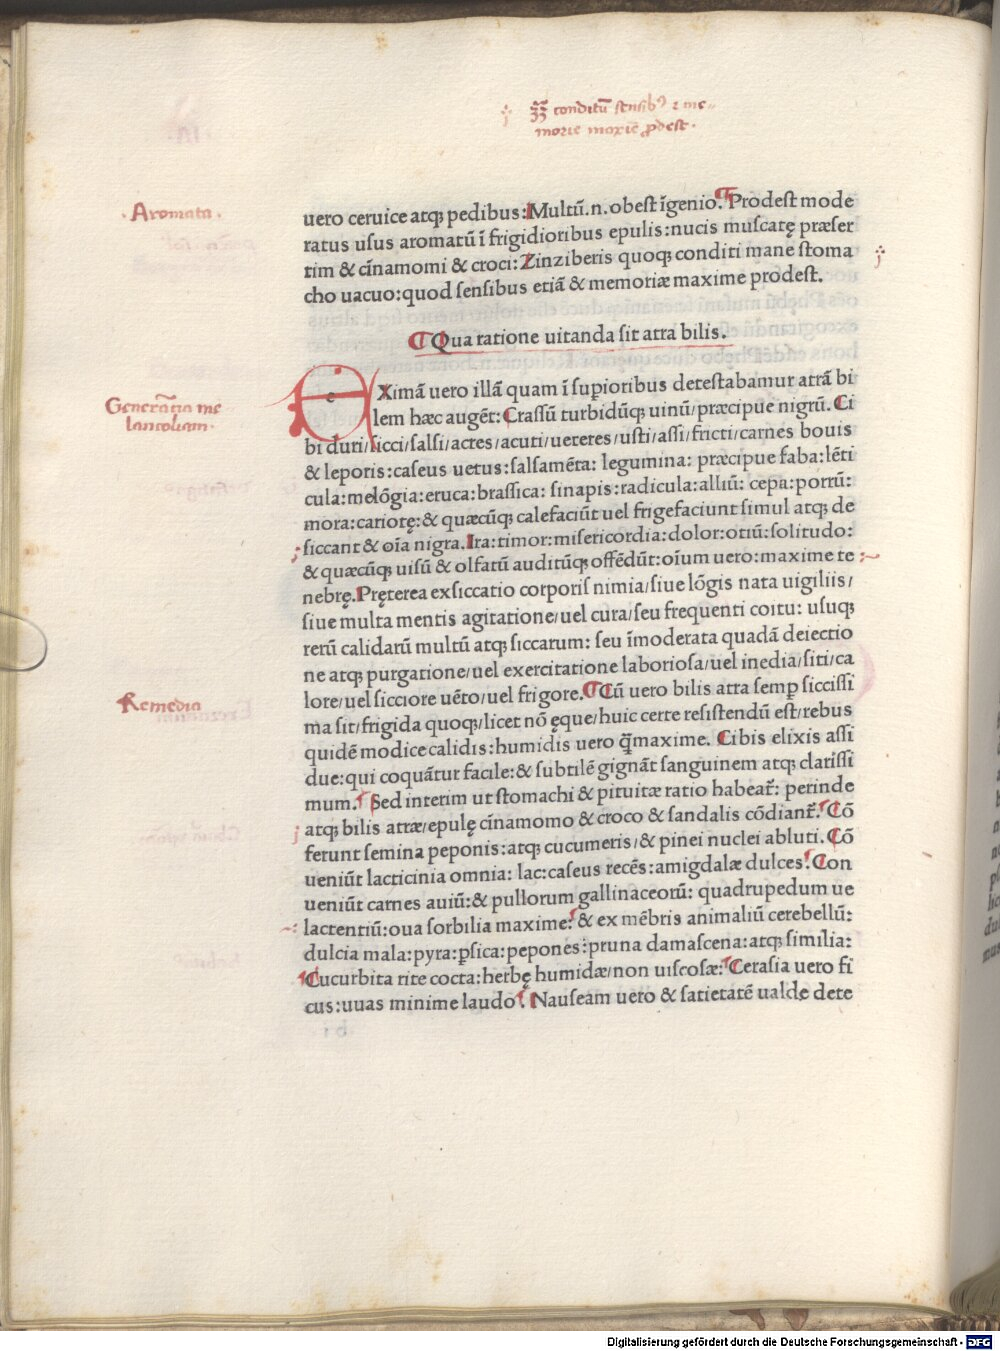 ʒʒ̃ conditũ sensibꝰ ⁊ me-
morie maxīe ꝓdest.
.Aromata.
uero ceruice atqꝫ pedibus: Multũ.n.obest ĩgenio. Prodest mode
ratus usus aromatũ ĩ frigidioribus epulis:nucis muscatę præser
tim & cĩnamomi & croci: Zinziberis quoqꝫ conditi mane stoma
cho uacuo:quod sensibus etiã & memoriæ maxime prodest.
¶ Qua ratione uitanda sit atra bilis.
Generãtia me-
lancoliam.
EXimã uero illã quam ĩ supioribus detestabamur atrã bi
lem hæc augẽt: Crassũ turbidũqꝫ uinũ/præcipue nigrũ. Ci
bi duri/sicci/salsi/acres/acuti/ueteres/usti/assi/fricti/carnes bouis
& leporis:caseus uetus:salsamẽta: legumina: præcipue faba:lẽti
cula:melõgia:eruca:brassica: sinapis:radicula:alliũ: cepa:porrũ:
mora:cariotę:& quæcũqꝫ calefaciũt uel frigefaciunt simul atqꝫ de
siccant & oĩa nigra. Ira:timor:misericordia:dolor:otiũ:solitudo:
& quæcũqꝫ uisũ & olfatũ auditũqꝫ offẽdũt:oĩum uero:maxime te
nebrę. Pręterea exsiccatio corporis nimia/siue lõgis nata uigiliis/
siue multa mentis agitatione/uel cura/seu frequenti coitu: usuqꝫ
rerũ calidarũ multũ atqꝫ siccarum: seu ĩmoderata quadã deiectio
ne atqꝫ purgatione/uel exercitatione laboriosa/uel inedia/siti/ca
lore/uel sicciore uẽto/uel frigore. ¶ Cũ uero bilis atra semꝑ siccissi
Remedia
ma sit/frigida quoqꝫ/licet nõ ęque/huic certe resistendũ est/rebus
quidẽ modice calidis:humidis uero q̃maxime. Cibis elixis assi
due:qui coquãtur facile:& subtilẽ gignãt sanguinem atqꝫ clarissi
mum. Sed interim ut stomachi & pituitæ ratio habeat̃: perinde
atqꝫ bilis atræ/epulę cĩnamomo & croco & sandalis cõdiant̃. Cõ
ferunt semina peponis:atqꝫ cucumeris/& pinei nuclei abluti. Cõ
ueniũt lacticinia omnia: lac:caseus recẽs:amigdalæ dulces. Con
ueniũt carnes auiũ:& pullorum gallinaceorũ: quadrupedum ue
lactentiũ:oua sorbilia maxime: & ex mẽbris animaliũ cerebellũ:
dulcia mala:pyra:ꝑsica:pepones:pruna damascena:atqꝫ similia:
Cucurbita rite cocta:herbę humidæ/non uiscosæ: Cerasia uero fi
cus:uuas minime laudo. Nauseam uero & satietatẽ ualde dete
Digitalisierung gefördert durch die Deutsche Forschungsgemeinschaft - DFG